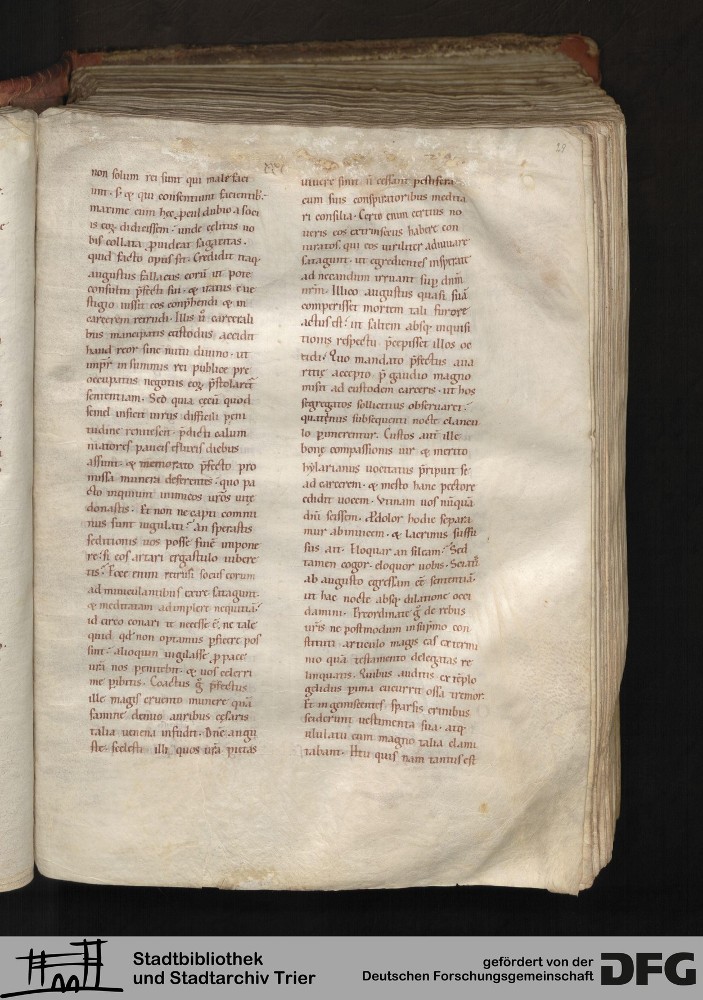 29
non solum rei sunt qui male faci
unt· sꝫ ⁊ qui consentiunt facientib;·
maxime cum hec ꝓcul dubio a soci
is eoꝝ didicissem· unde celitus uo
bis collata ꝓuideat sagacitas·
quid facto opus sit· Credidit itaq
augustus fallacius eorū ut pote
consulin p̄fecti sui· ⁊
stigio iussit eos conp̄hendi ⁊ in
carcerem retrudi· Illis ū carcerali
bus mancipatis custodiis accidit
haud reor sine nutu diuino· ut
imp̄r in summis rei publice pre
occupatus negotiis eoꝝ p̄stolaret
sententiam· Sed quia cecū quod
semel inficit uirus difficili ꝑni
tudine p̄dicti
natores paucis diebus
assunt· ⁊ memorato p̄fecto pro
missa munera deferentes· quo pa
cto inquiunt inimicos ur̄os uite
donastis· Et non ne capti commi
nus sunt iugulati· an sperastis
seditionis uos posse finē impone
re· si eos artari ergastulo iubere
tis· Ecce enim retrusi sociis eorum
ad
⁊ meditatam adimplere nequitiā·
id circo conari te necesse ē· ne tale
quid qd̄ non optamus ꝑficere pos
sint· alioquin uigilasse ꝓ pace
nr̄a nos penitebit· ⁊ uos celerri
me Coactus g̊ p̄fectus
ille magis cruento munere quā
famine denuo auribus cesaris
talia uenena infudit· Dn̄e augu
ste· scelesti illi quos ur̄a pietas
uiuere sinit n̄ cessant pestifera
cum suis conspiratoribus medita
ri consilia· Certo enim certius no
ueris eos extrinsecus habere con
iuratos· qui eos uiriliter adiuuare
satagunt· ut egredientes insperate
ad necandum irruant sup dnm̄
nr̄m· Illico augustus quasi suā
comperisset mortem tali furore
actus est· ut saltem absq inquisi
tionis respectu p̄cepisset illos oc
cidi· Quo mandato p̄fectus aua
ritie accepto p̄ gaudio magno
misit ad custodem carceris· ut hos
segregatos sollicitius obseruaret·
quatenus subsequenti nocte clancu
lo ꝑimerentur· Custos aut̄ ille
bone compassionis uir ⁊ merito
hylarianus uocitatus p̄ripuit se
ad carcerem· ⁊ mesto hanc pectore
edidit uocem· Vtinam uos nūquā
diu scissem· Ædolor hodie separa
mur abinuicem· ⁊ lacrimis suffu
sus ait· Eloquar an sileam· Sed
tamen cogor· eloquor uobis· Sciatis
ab augusto egressam eē sententiā·
ut hac nocte absq dilatione occi
damini· Precordinate g̊ de rebus
ur̄is ne postmodum in sup̄mo con
stituti articulo magis eas extermi
nio quā testamento delegatas re
linquatis· Quibus auditis extēplo
gelidus ꝑima cucurrit ossa tremor·
Et ingemiscentes· sparsis crinibus
sciderunt uestimenta sua· atq
ululatu cum magno talia clami
tabant· Heu quis nam tantus est
Stadtbibliothek
und Stadtarchiv Trier
gefördert von der
Deutschen Forschungsgemeinschaft
DFG